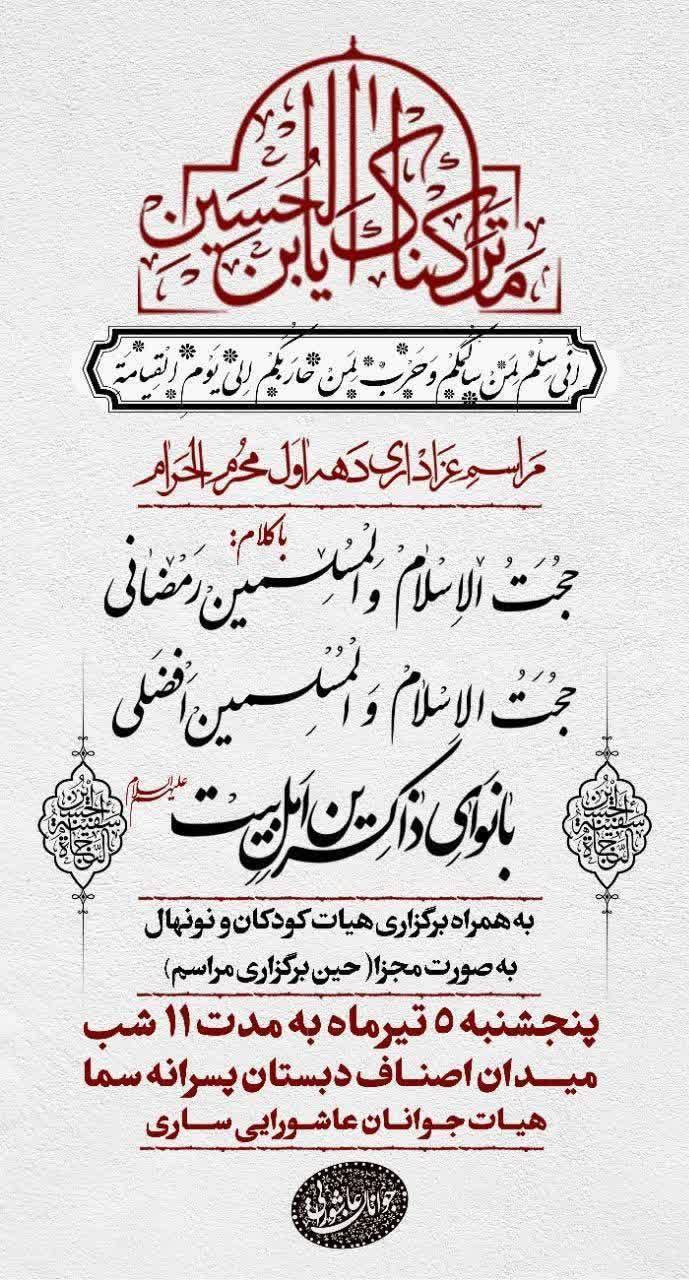 ما ترکناک یابن الحسین
انی سلم لمن سالمکم و حرب لمن حاربکم الی یوم القیامة
مراسم عزاداری دهه اول محرم الحرام
با کلام:
حجت الاسلام والمسلمین رمضانی
حجت الاسلام والمسلمین افضلی
با نوای ذاکرین اهل بیت علیهم السلام
الحسین سفینة النجاة
الحسین سفینة النجاة
به همراه برگزاری هیات کودکان و نونهال
به صورت مجزا( حین برگزاری مراسم)
پنجشنبه ۵ تیرماه به مدت ۱۱ شب
میدان اصناف دبستان پسرانه سما
هیات جوانان عاشورایی ساری
جوانان عاشورایی